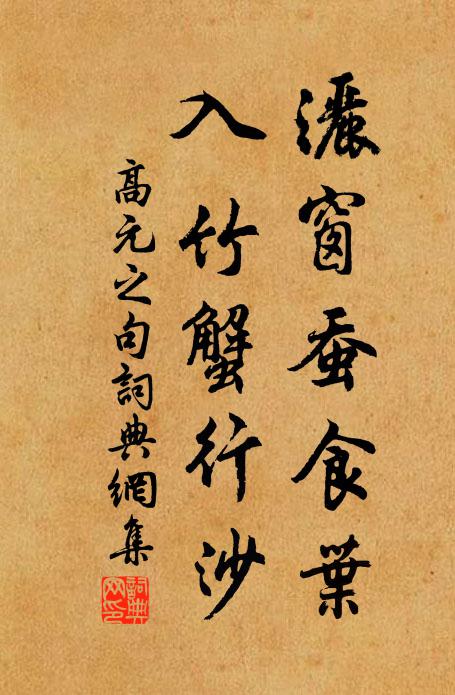 灑窗蚕食葉
入竹蟹行沙
高元之句詞典網集
詞典
网印